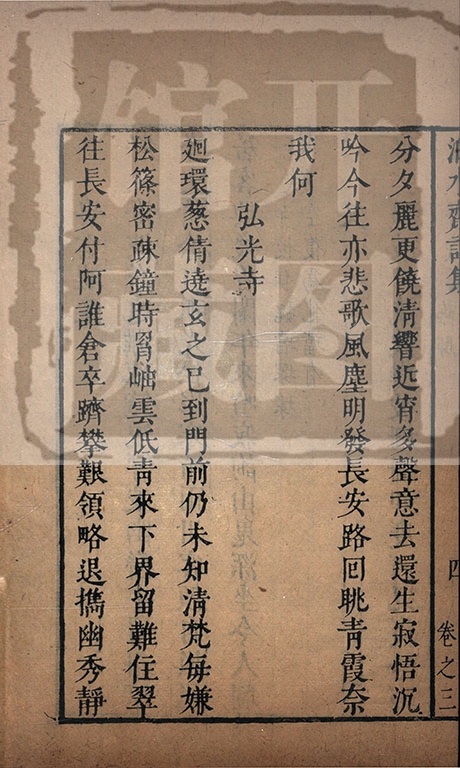 分夕麗更饒清響近宵多聲意去還生寂悟沉
吟今往亦悲歌風塵明發長安路回眺青霞奈
我何
弘光寺
廻環葱倩遶玄之已到門前仍未知清梵每嫌
松篠密疎鐘時詧岫雲低青來下界留難住翠
往長安付阿誰倉卒躋攀艱領略退擕幽秀靜
四
卷之三